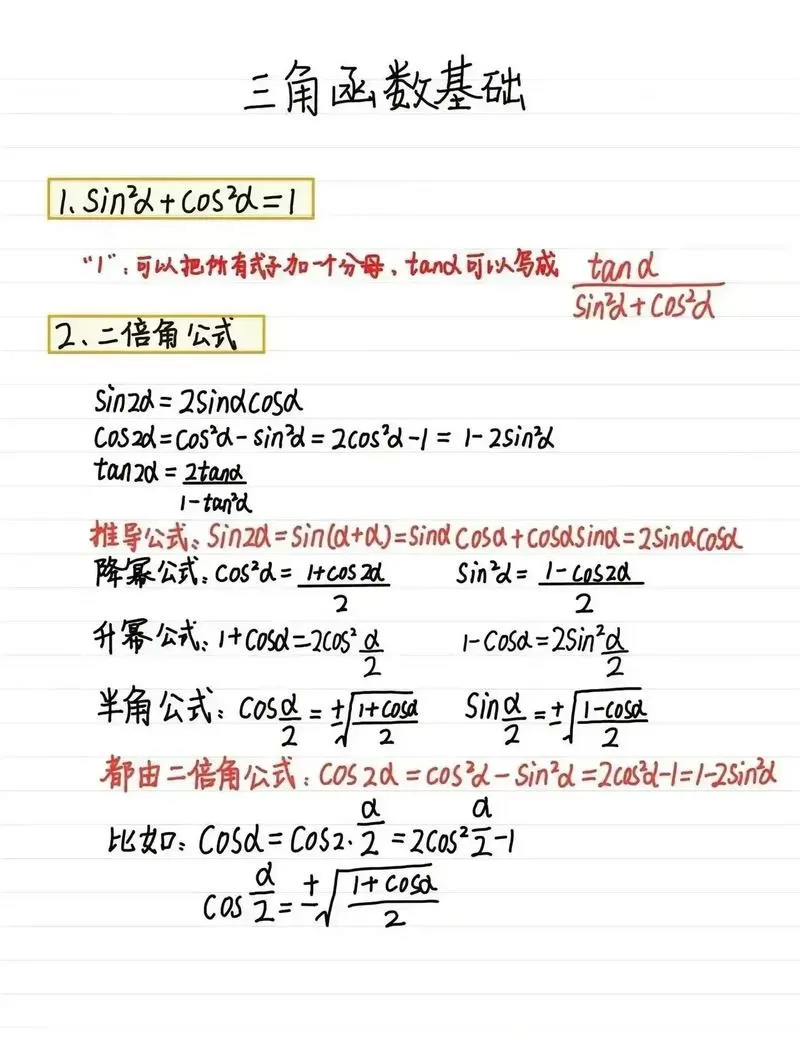 三角函数基础
1、sin²α+cos²α=1
"1"：可以把所有式子加一个分母，tanα可以写成 tanα/(sin²α+cos²α)
2、二倍角公式
sin2α=2sinαcosα
cos2α=cos²α-sin²α=2cos²α-1=1-2sin²α
tan2α=2tanα/(1-tan²α)
推导公式：sin2α=sin(α+α)=sinαcosα+cosαsinα=2sinαcosα
降幂公式：cos²α=(1+cos2α)/2 sin²α=(1-cos2α)/2
升幂公式：1+cosα=2cos²α/2 1-cosα=2sin²α/2
半角公式：cosα/2=±√((1+cosα)/2) sinα/2=±√((1-cosα)/2)
都由二倍角公式：cos2α=cos²α-sin²α=2cos²α-1=1-2sin²α
比如：cosα=cos2·α/2=2cos²α/2-1
cosα/2=±√((1+cosα)/2)